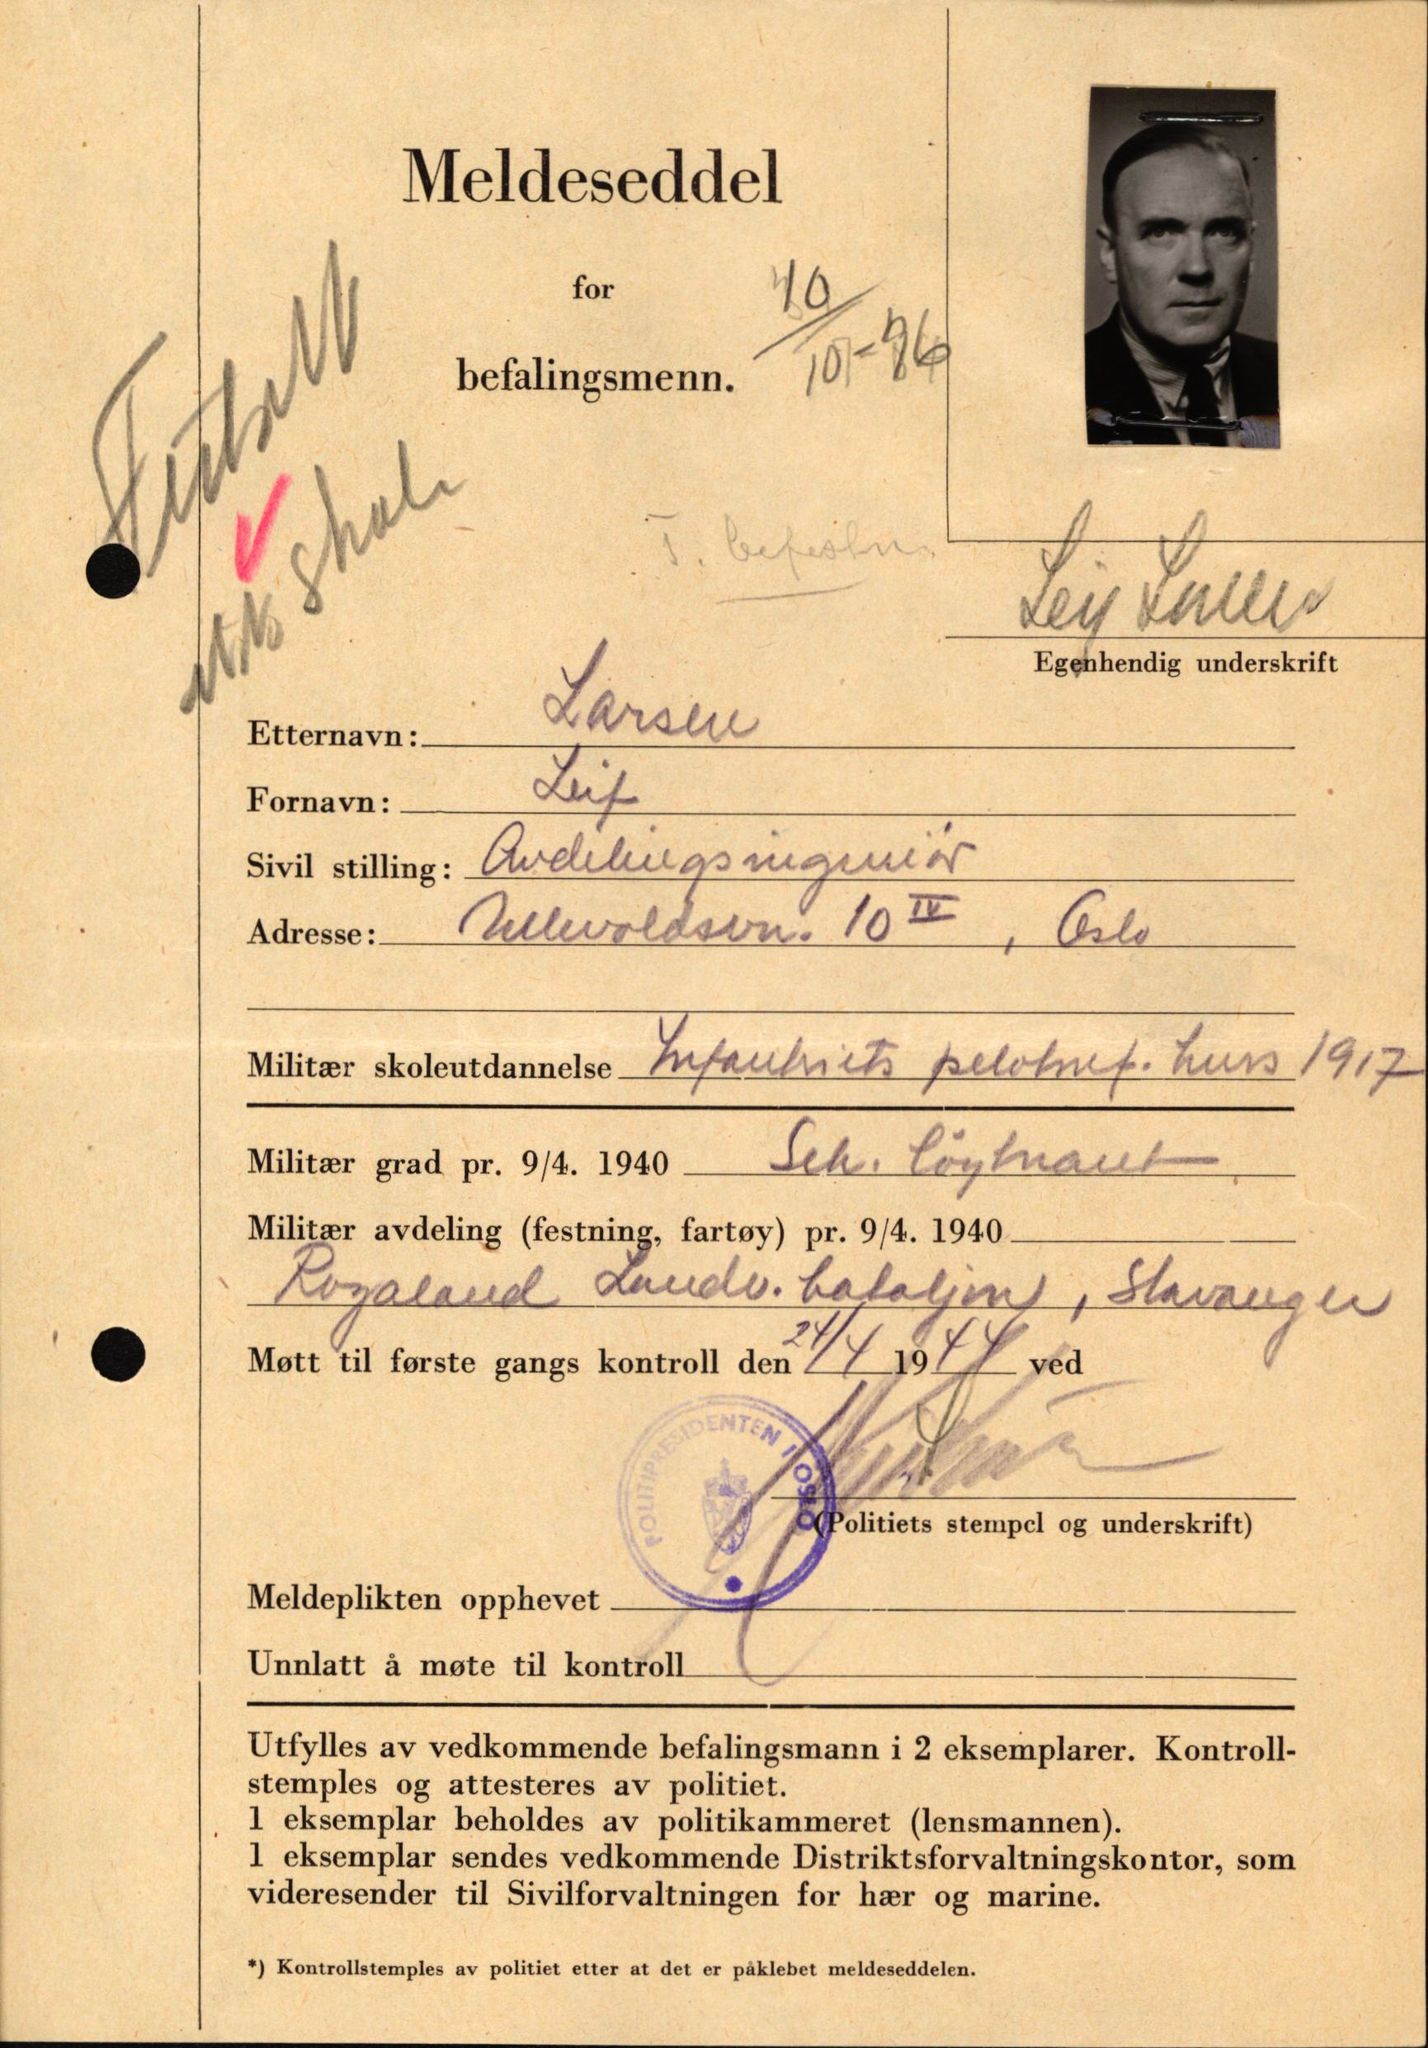 Meldeseddel
for
befalingsmenn.
Leif Larsen
Egenhendig underskrift
Etternavn: Larsen
Fornavn: Leif
Sivil stilling: Avdelingsingeniør
Adresse: Ullevoldsvn. 10 IV, Oslo
Militær skoleutdannelse Infanteriets kurs 1917
Militær grad pr. 9/4. 1940 Sek. løytnant
Militær avdeling (festning, fartøy) pr. 9/4. 1940
Rogaland Landv. bataljon, Stavanger
Møtt til første gangs kontroll den 24/4 1944 ved
POLITIPRESIDENTEN I OSLO
(Politiets stempel og underskrift)
Meldeplikten opphevet
Unnlatt å møte til kontroll
Utfylles av vedkommende befalingsmann i 2 eksemplarer. Kontroll-
stemples og attesteres av politiet.
1 eksemplar beholdes av politikammeret (lensmannen).
1 eksemplar sendes vedkommende Distriktsforvaltningskontor, som
videresender til Sivilforvaltningen for hær og marine.
*) Kontrollstemples av politiet etter at det er påklebet meldeseddelen.